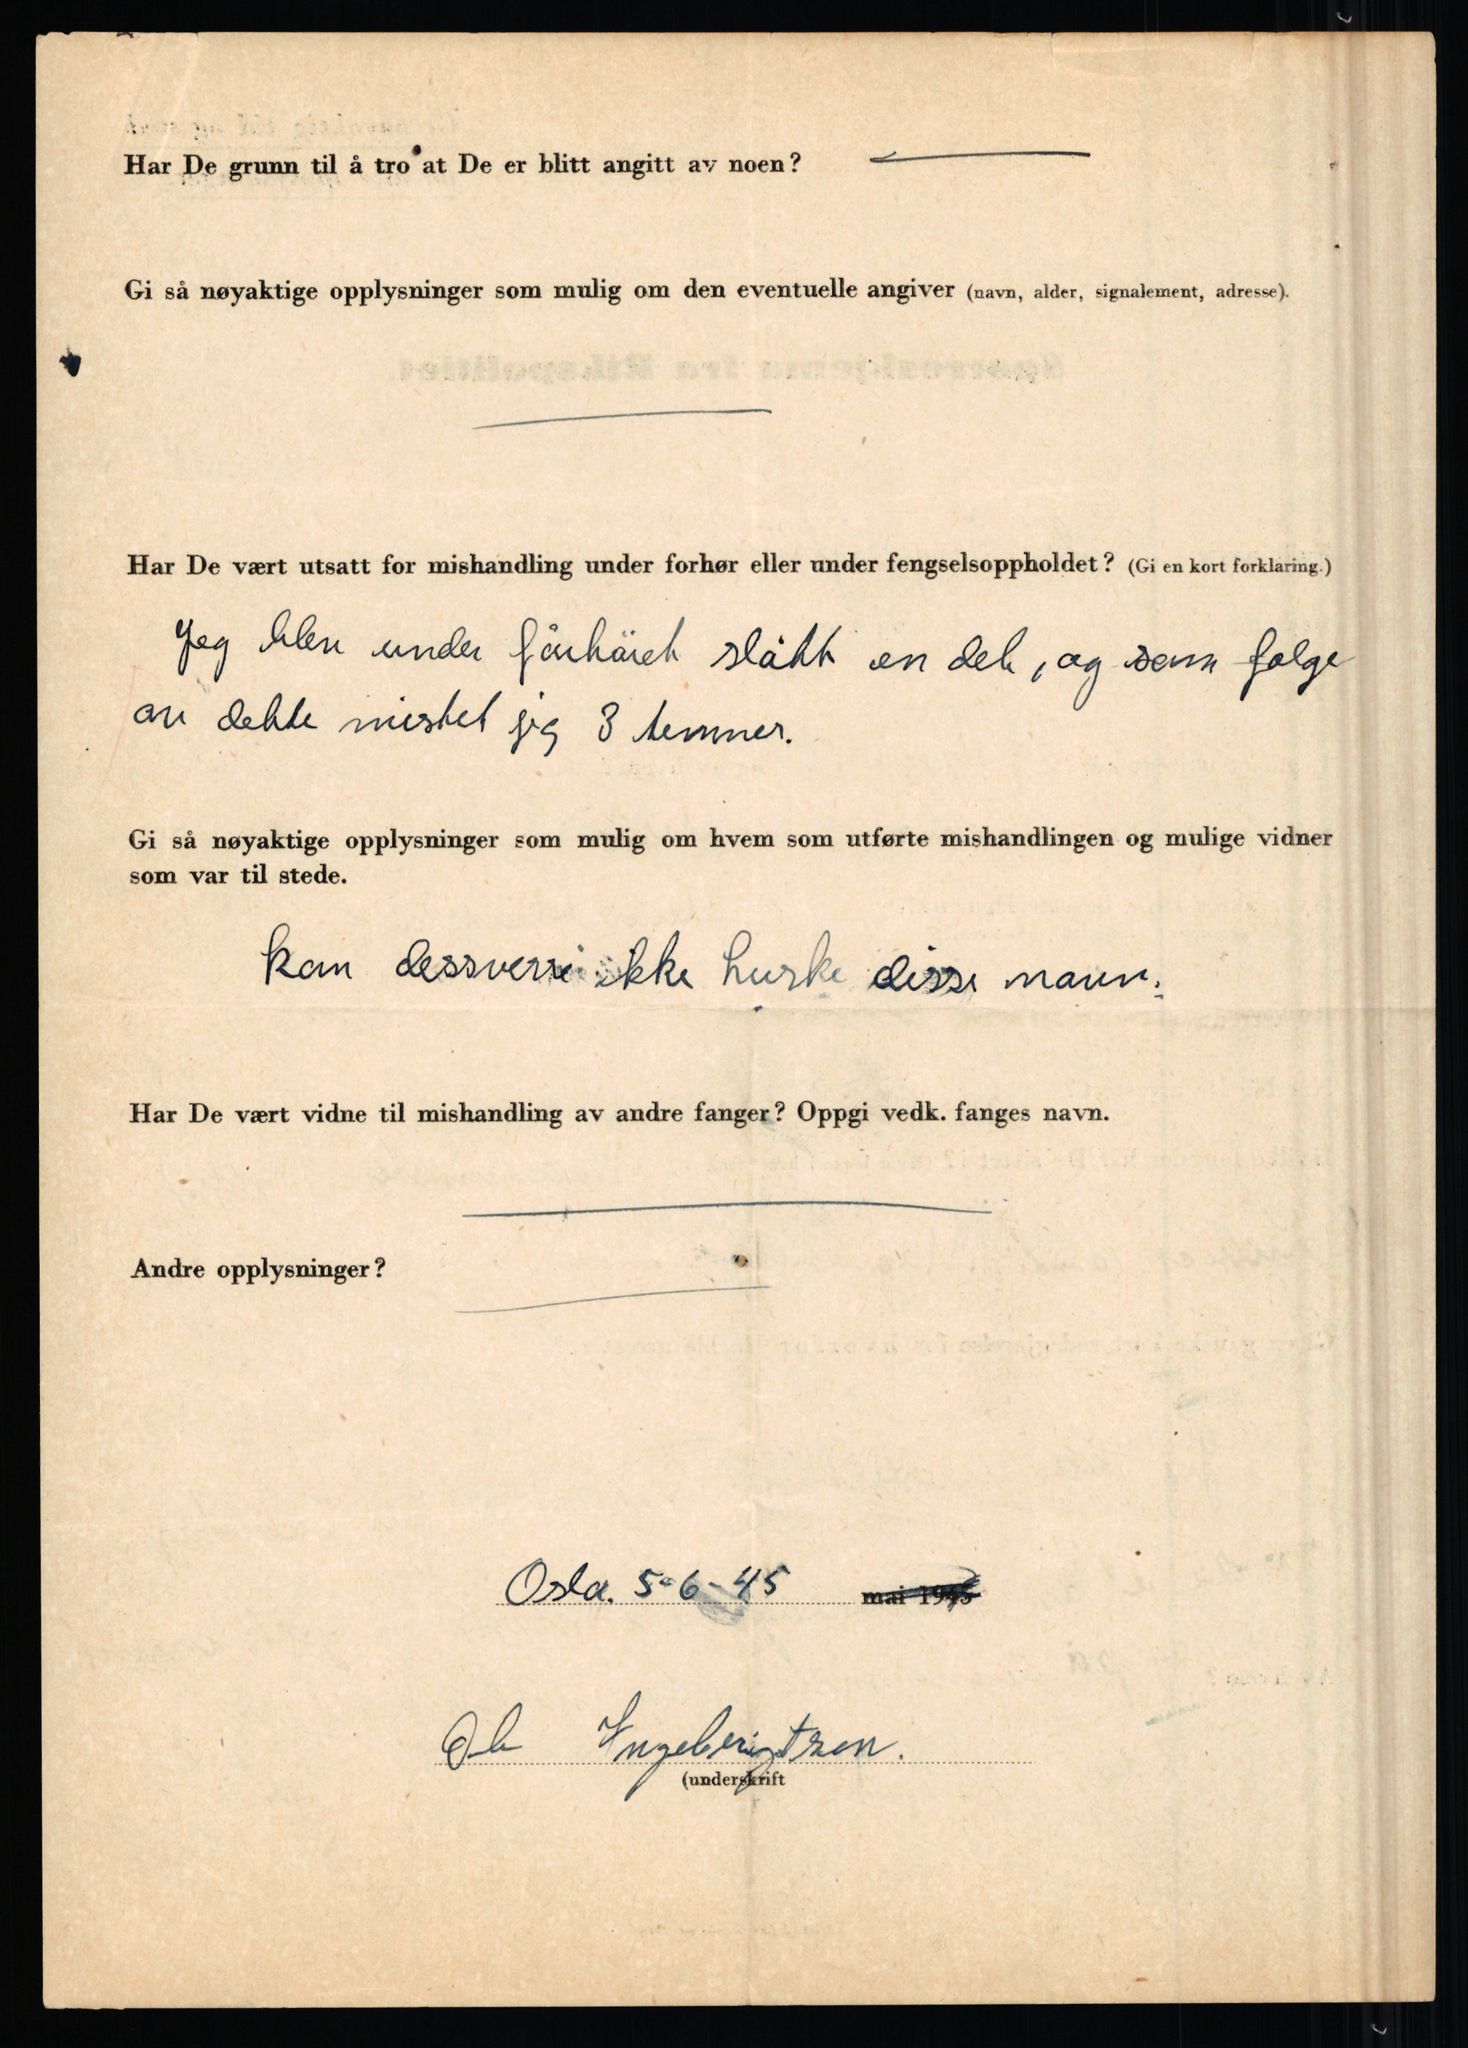 Har De grunn til å tro at De er blitt angitt av noen?
Gi så nøyaktige opplysninger som mulig om den eventuelle angiver (navn, alder, signalement, adresse).
Har De vært utsatt for mishandling under forhør eller under fengselsoppholdet? (Gi en kort forklaring.)
Jeg blev under fårhäret slått en del, og som følge
av dette mistet jeg 3 tenner.
Gi så nøyaktige opplysninger som mulig om hvem som utførte mishandlingen og mulige vidner
som var til stede.
kan dessverre ikke huske disse navn.
Har De vært vidne til mishandling av andre fanger? Oppgi vedk. fanges navn.
Andre opplysninger?
Oslo. 5-6-45 mai 1945
Ole Ingebrigtsen.
(underskrift